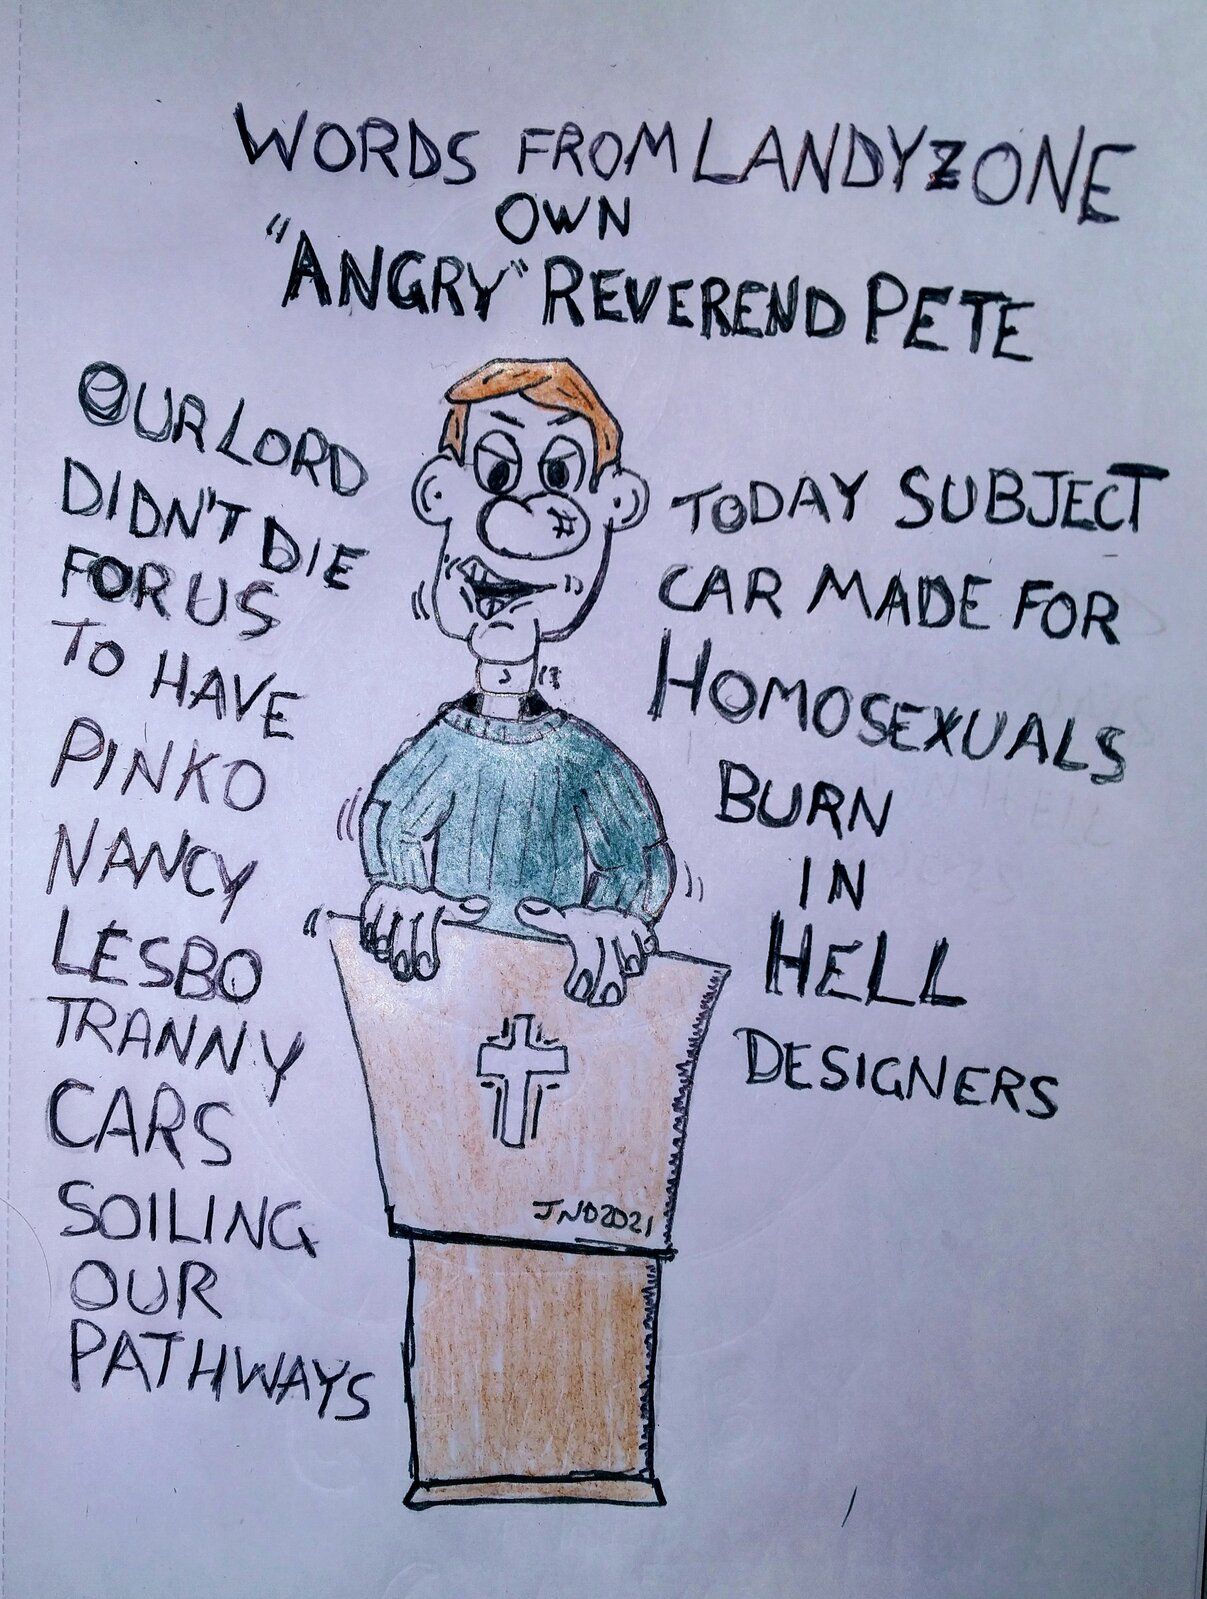 WORDS FROM LANDYZONE
OWN
"ANGRY" REVEREND PETE
OUR LORD
DIDN'T DIE
FOR US
TO HAVE
PINKO
NANCY
LESBO
TRANNY
CARS
SOILING
OUR
PATHWAYS
TODAY SUBJECT
CAR MADE FOR
HOMOSEXUALS
BURN
IN
HELL
DESIGNERS
JND2021